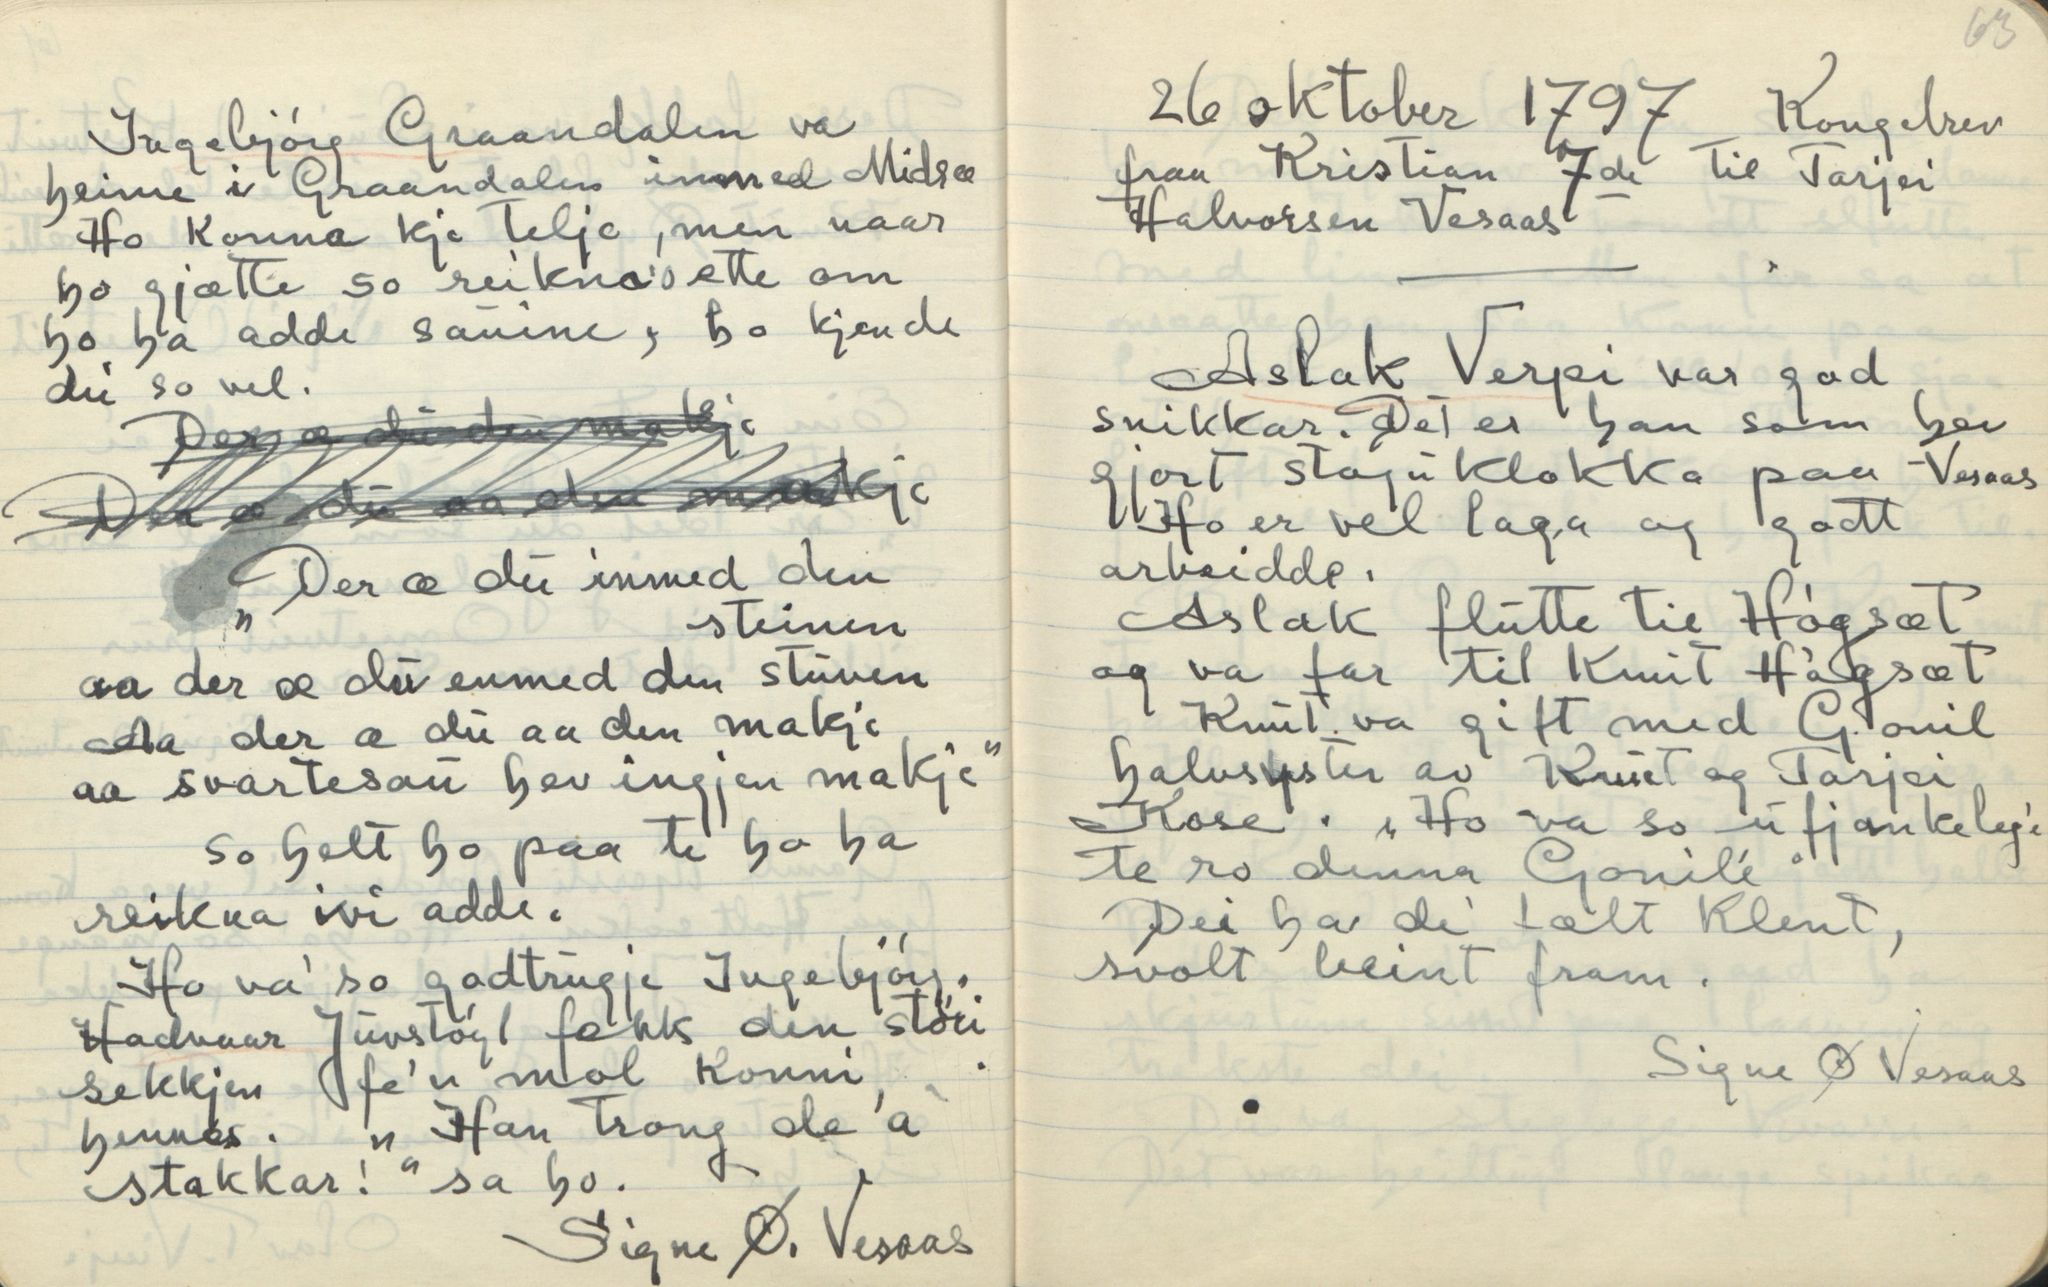 Ingebjórg Graandalen va
heime i Graandalen innmed Midsæ
Ho konna kje telje, men naar
ho gjætte so reikna'o ette om
ho ha adde sauine, ho kjende
dú so vel.
Der æ dú den makje
Der æ dú aa den makje
„Der æ dú inmed den
steinen
aa der æ dú enmed den stuven
Aa der æ dú aa den makje
aa svartesau hev ingjen makje"
so helt ho paa te ho ha
reikna ivi adde.
Ho va' so godtrugje Ingebjórg.
Hadvaar Juvstógl fekk den stóri
sekkjen fe'n mol konni
hennes. „Han trong de'a
stakkar!" sa ho.
Signe Ø. Vesaas
63
26 oktober 1797 Kongebrev
fraa Kristian 7de til Tarjei
Halvorsen Vesaas
Aslak Verpi var god
snikkar. Det er han som hev
gjort stoguklokka paa Vesaas
Ho er vel laga og godt
arbeidde.
Aslak flutte til Hógsæt
og va far til Knut Hógsæt
Knut va gift med Gonil
halvsyster av Knut og Tarjei
Kose. „Ho va so ufjankelegje
te ro denna Gonilé"
Dei ha de' fælt klent,
svolt beint fram.
Signe Ø Vesaas